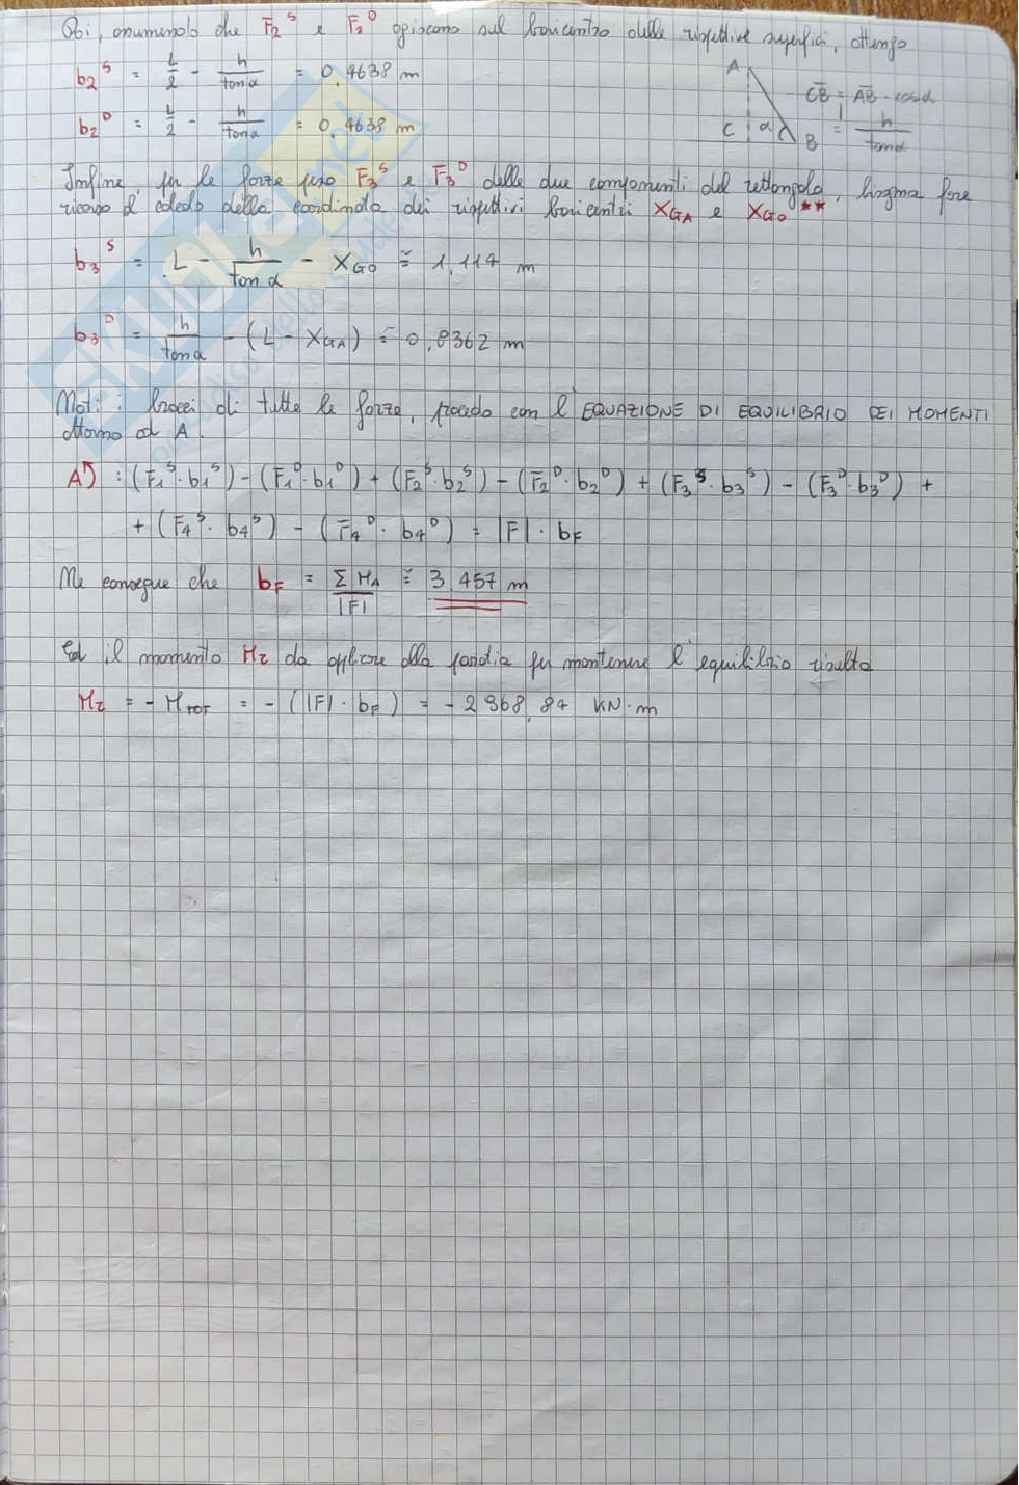 Poi, assumendo che F₂ˢ e F₂ᴰ agiscano sul baricentro delle rispettive superfici, ottengo
b₂ˢ = L/2 - h/tanα = 0,4638 m
b₂ᴰ = L/2 - h/tanα = 0,4638 m
A
C α B
CB = AB · cosα
= h/tanα
Infine, per le forze peso F₃ˢ e F₃ᴰ delle due componenti del rettangolo, bisogna fare
ricorso al calcolo della coordinata dei rispettivi baricentri X_GA e X_GO **
b₃ˢ = L - h/tanα - X_GO ≅ 1,117 m
b₃ᴰ = h/tanα - (L - X_GA) = 0,8362 m
Noti i bracci di tutte le forze, procedo con l'EQUAZIONE DI EQUILIBRIO DEI MOMENTI
attorno ad A.
A↺ : (F₁ˢ · b₁ˢ) - (F₁ᴰ · b₁ᴰ) + (F₂ˢ · b₂ˢ) - (F₂ᴰ · b₂ᴰ) + (F₃ˢ · b₃ˢ) - (F₃ᴰ · b₃ᴰ) +
+ (F₄ˢ · b₄ˢ) - (F₄ᴰ · b₄ᴰ) = |F| · b_F
Ne consegue che b_F = Σ M_A / |F| ≅ 3,457 m
Ed il momento M_z da applicare alla paratia per mantenere l'equilibrio risulta
M_z = - M_TOT = - (|F| · b_F) = - 2968,84 KN·m